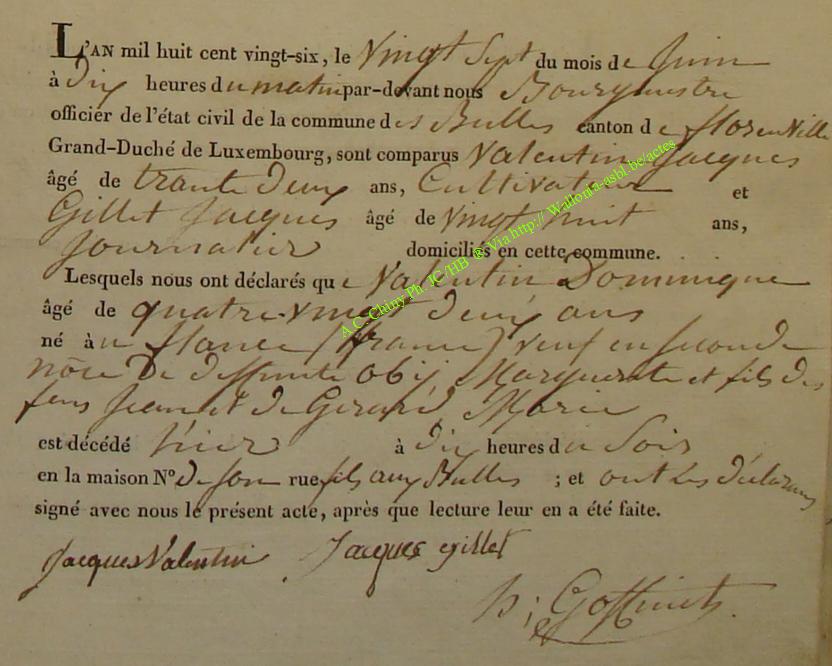 L'AN mil huit cent vingt-six, le vingt Sept du mois de Juin
à dix heures du matin par-devant nous Bourgmestre
officier de l'état civil de la commune des Bulles canton de florenville
Grand-Duché de Luxembourg, sont comparus Valentin Jacques
âgé de trante deux ans, Cultivateur et
Gillet Jacques âgé de vingt huit ans,
Journalier domiciliés en cette commune.
Lesquels nous ont déclarés que Valentin Dominique
âgé de quatre-vingt deux ans
né à flance (france) veuf en seconde
nôce de deffunte Obij Marguerite et fils des
feus Jean et de Gerard Marie
est décédé hier à dix heures du Soir
en la maison N° de son rue fils aux Bulles ; et ont les déclarans
signé avec nous le présent acte, après que lecture leur en a été faite.
Jacques Valentin Jacques gillet
h; Goffinet
A.C. Chiny Ph. JC/HB @ Via http:// Wallonia-asbl.be/actes